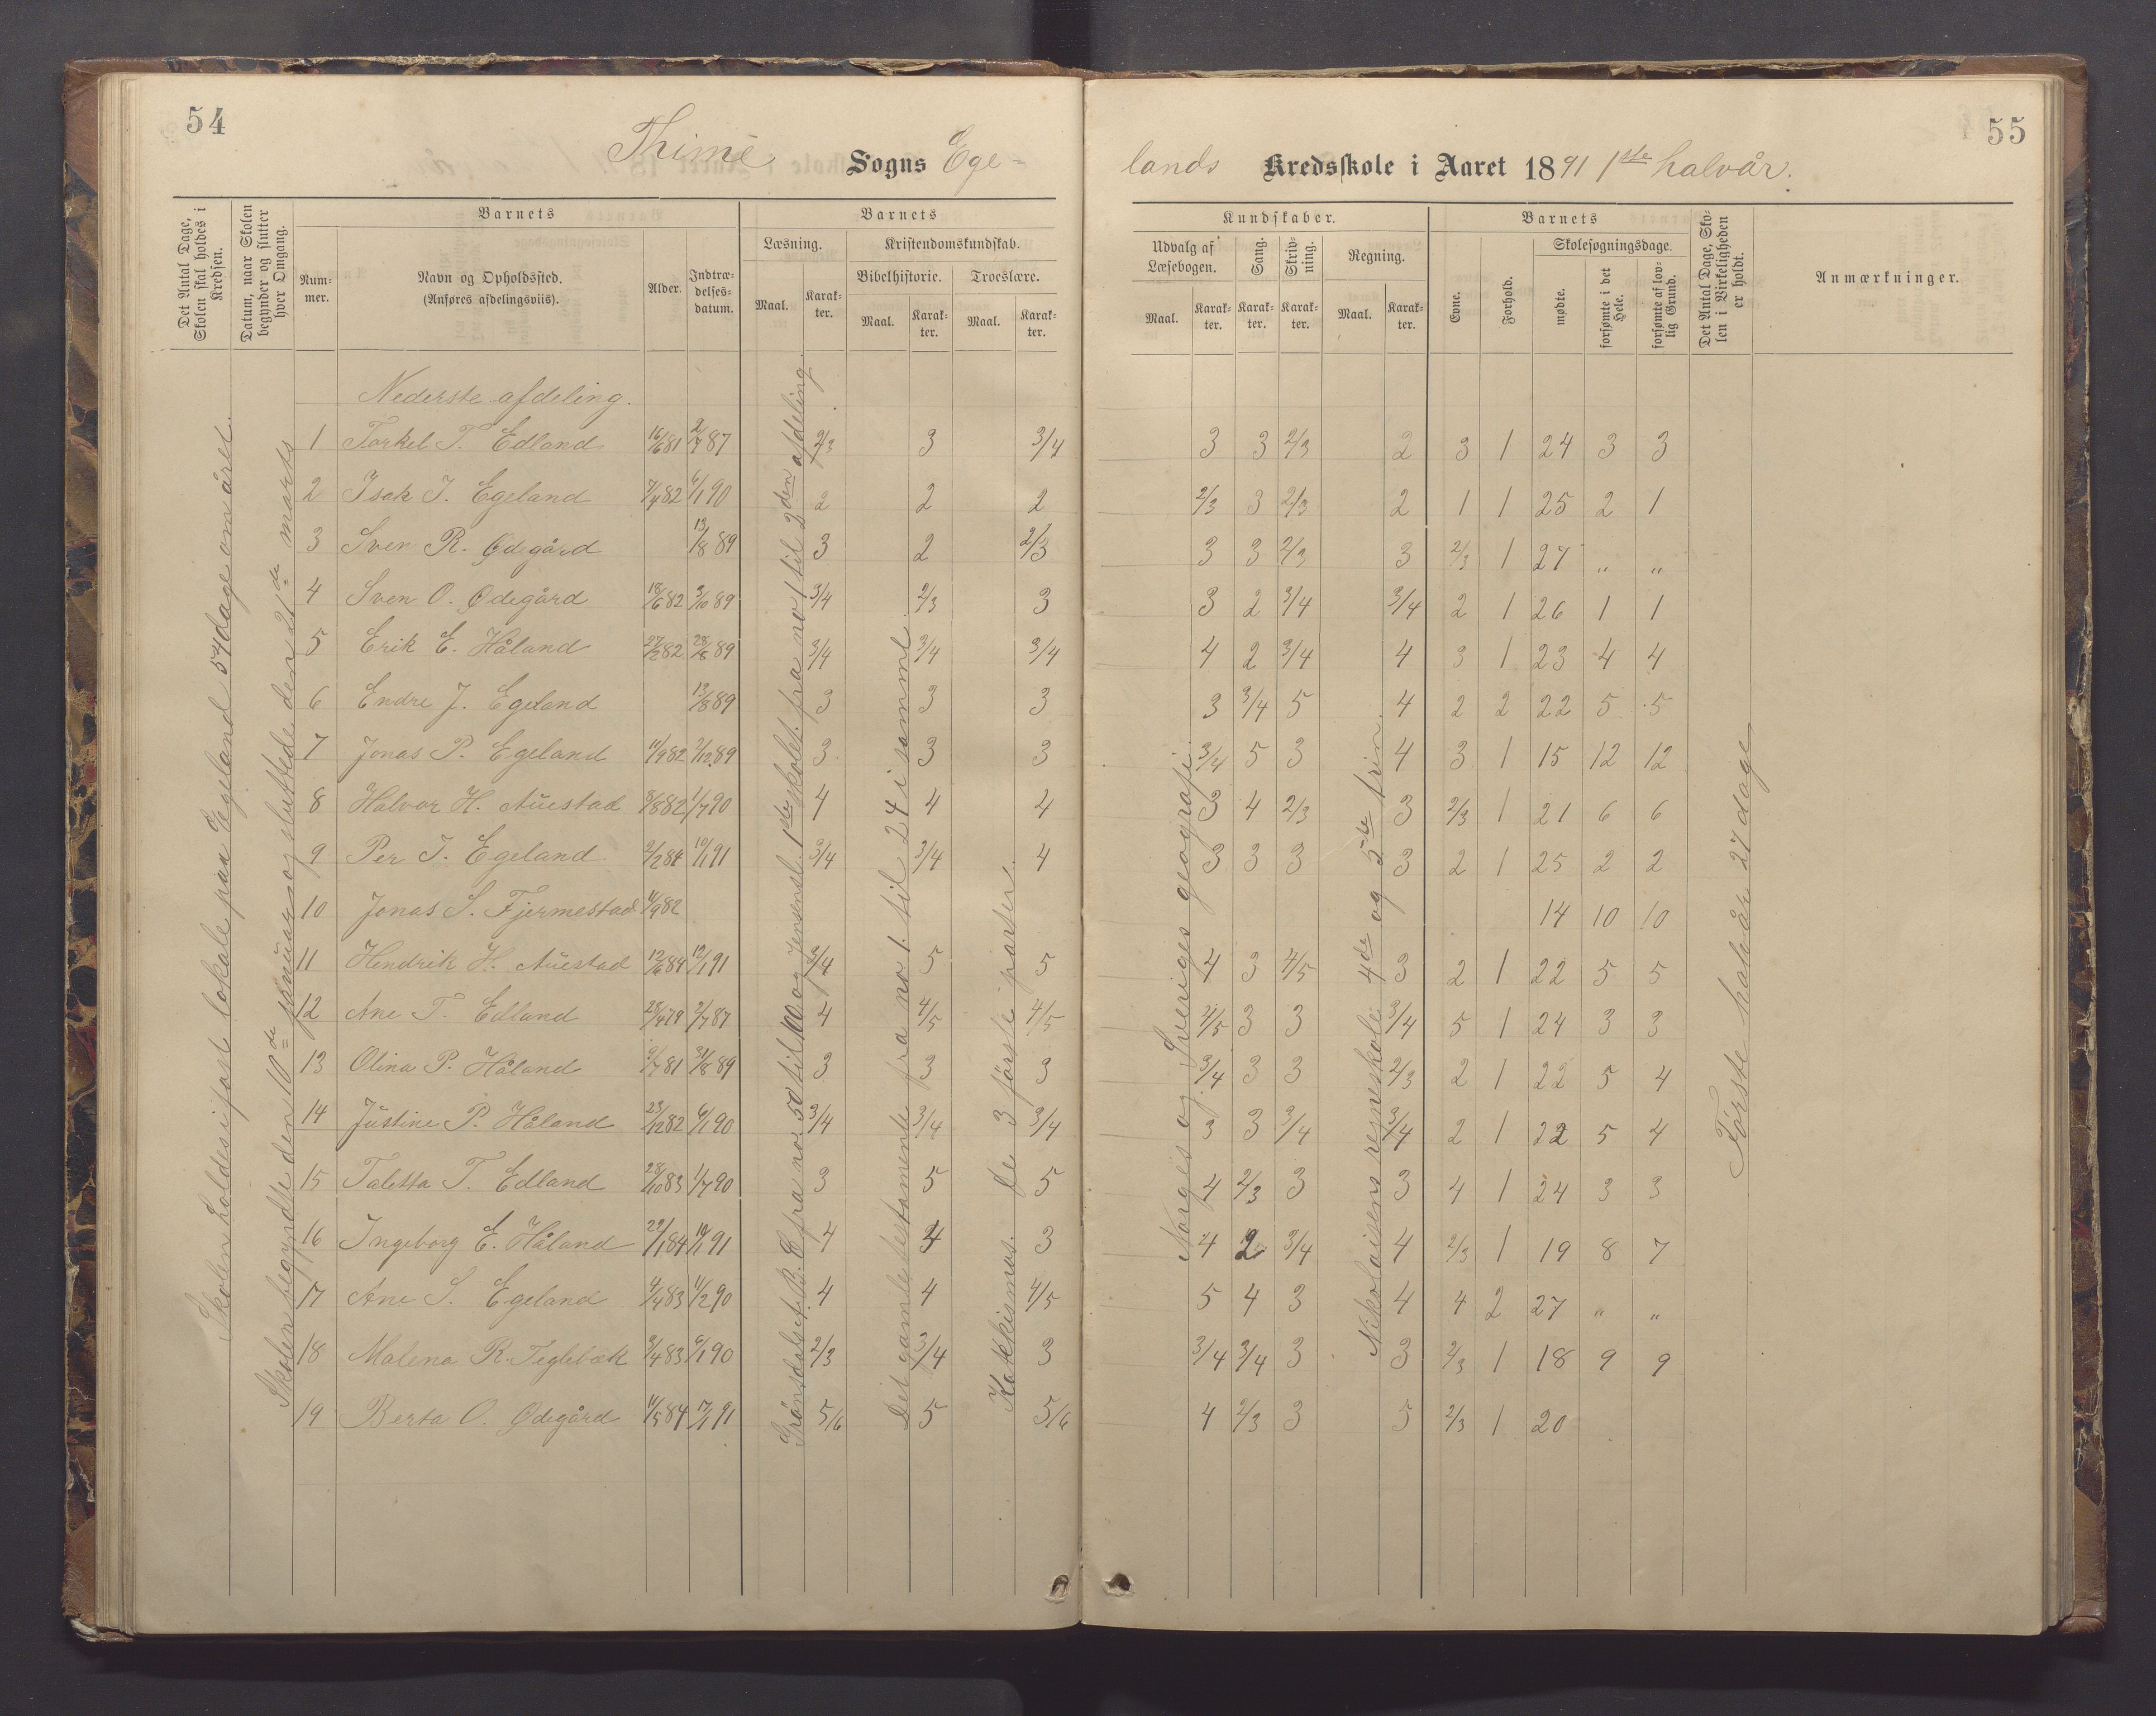 54
Thime Sogns Ege-
Det Antal Dage, Skolen skal holdes i Kredsen.
Datum, naar Skolen begynder og slutter hver Omgang.
Barnets
Nummer.
Navn og Opholdssted.
(Anføres afdelingsviis).
Alder.
Indtrædelsesdatum.
Barnets
Læsning.
Maal.
Karakter.
Kristendomskundskab.
Bibelhistorie.
Maal.
Karakter.
Troeslære.
Maal.
Karakter.
Skolen holdes i fast lokale paa Egeland 54 dage om året.
Skolen begyndte den 10de januar og sluttede den 21de marts
Nederste afdeling.
1 Torkel T. Edland 16/6 81 2/7 87 2/3 3 3/4
2 Isak J. Egeland 7/4 82 6/1 90 2 2 2
3 Sven R. Ødegård 13/8 89 3 2 2/3
4 Sven O. Ødegård 18/6 82 3/10 89 3/4 2/3 3
5 Erik E. Håland 27/2 82 28/8 89 3/4 3/4 3/4
6 Endre J. Egeland 13/8 89 3 3 3
7 Jonas P. Egeland 11/9 82 2/12 89 3 3 3
8 Halvor H. Auestad 8/8 82 1/7 90 4 4 4
9 Per J. Egeland 2/2 84 10/1 91 3/4 3/4 4
10 Jonas S. Fjermestad 11/9 82
11 Hendrik H. Auestad 12/6 84 12/1 91 3/4 5 5
12 Ane T. Edland 28/4 79 2/7 87 4 4/5 4/5
13 Olina P. Håland 9/7 81 31/8 89 3 3 3
14 Justine P. Håland 23/12 82 6/1 90 3/4 3/4 3/4
15 Taletta T. Edland 28/10 83 1/7 90 3 5 5
16 Ingeborg E. Håland 29/1 84 10/1 91 4 4 3
17 Ane S. Egeland 4/4 83 11/2 90 4 4 4/5
18 Malena R. Teglebæk 3/4 83 6/1 90 2/3 3/4 3
19 Berta O. Ødegård 11/5 84 17/1 91 5/6 5 5/6
Grønsdalsets A. B. C fra no 50 til 100 og Jensensl. 1ste skolet. fra no 1 til 3den afdeling.
Det gamle testamente fra no 1. til 24 i samml.
Katekismus. de 3 første parter.
55
lands Kredsskole i Aaret 1891 1ste halvår.
Kundskaber.
Udvalg af Læsebogen.
Maal.
Karakter.
Sang.
Karakter.
Skrivning.
Karakter.
Regning.
Maal.
Karakter.
Barnets
Evne.
Forhold.
Skolesøgningsdage.
mødte.
forsømte i det Hele.
forsømte af lovlig Grund.
Det Antal Dage, Skolen i Virkeligheden er holdt.
Anmærkninger.
3 3 2/3 2 3 1 24 3 3
2/3 3 2/3 2 1 1 25 2 1
3 3 2/3 3 2/3 1 27 " "
3 2 3/4 3/4 2 1 26 1 1
4 2 3/4 4 3 1 23 4 4
3 3/4 5 4 2 2 22 5 5
3/4 5 3 4 3 1 15 12 12
3 4 2/3 3 2/3 1 21 6 6
3 3 3 3 2 1 25 2 2
14 10 10
4 3 4/5 3 2 1 22 5 5
4/5 3 3 3/4 5 1 24 3 3
3/4 3 3 2/3 2 1 22 5 4
3 3 3/4 3/4 2 1 22 5 4
4 2/3 3 3 4 1 24 3 3
4 2 3/4 4 2/3 1 19 8 7
5 4 3 4 4 2 27 " "
3/4 3/4 3 3 2/3 1 18 9 9
4 2/3 3 5 2/3 1 20
Norges og Sveriges geografi.
Nikolaisens regneskole 4de og 5te trin.
Første halvår 27 dage